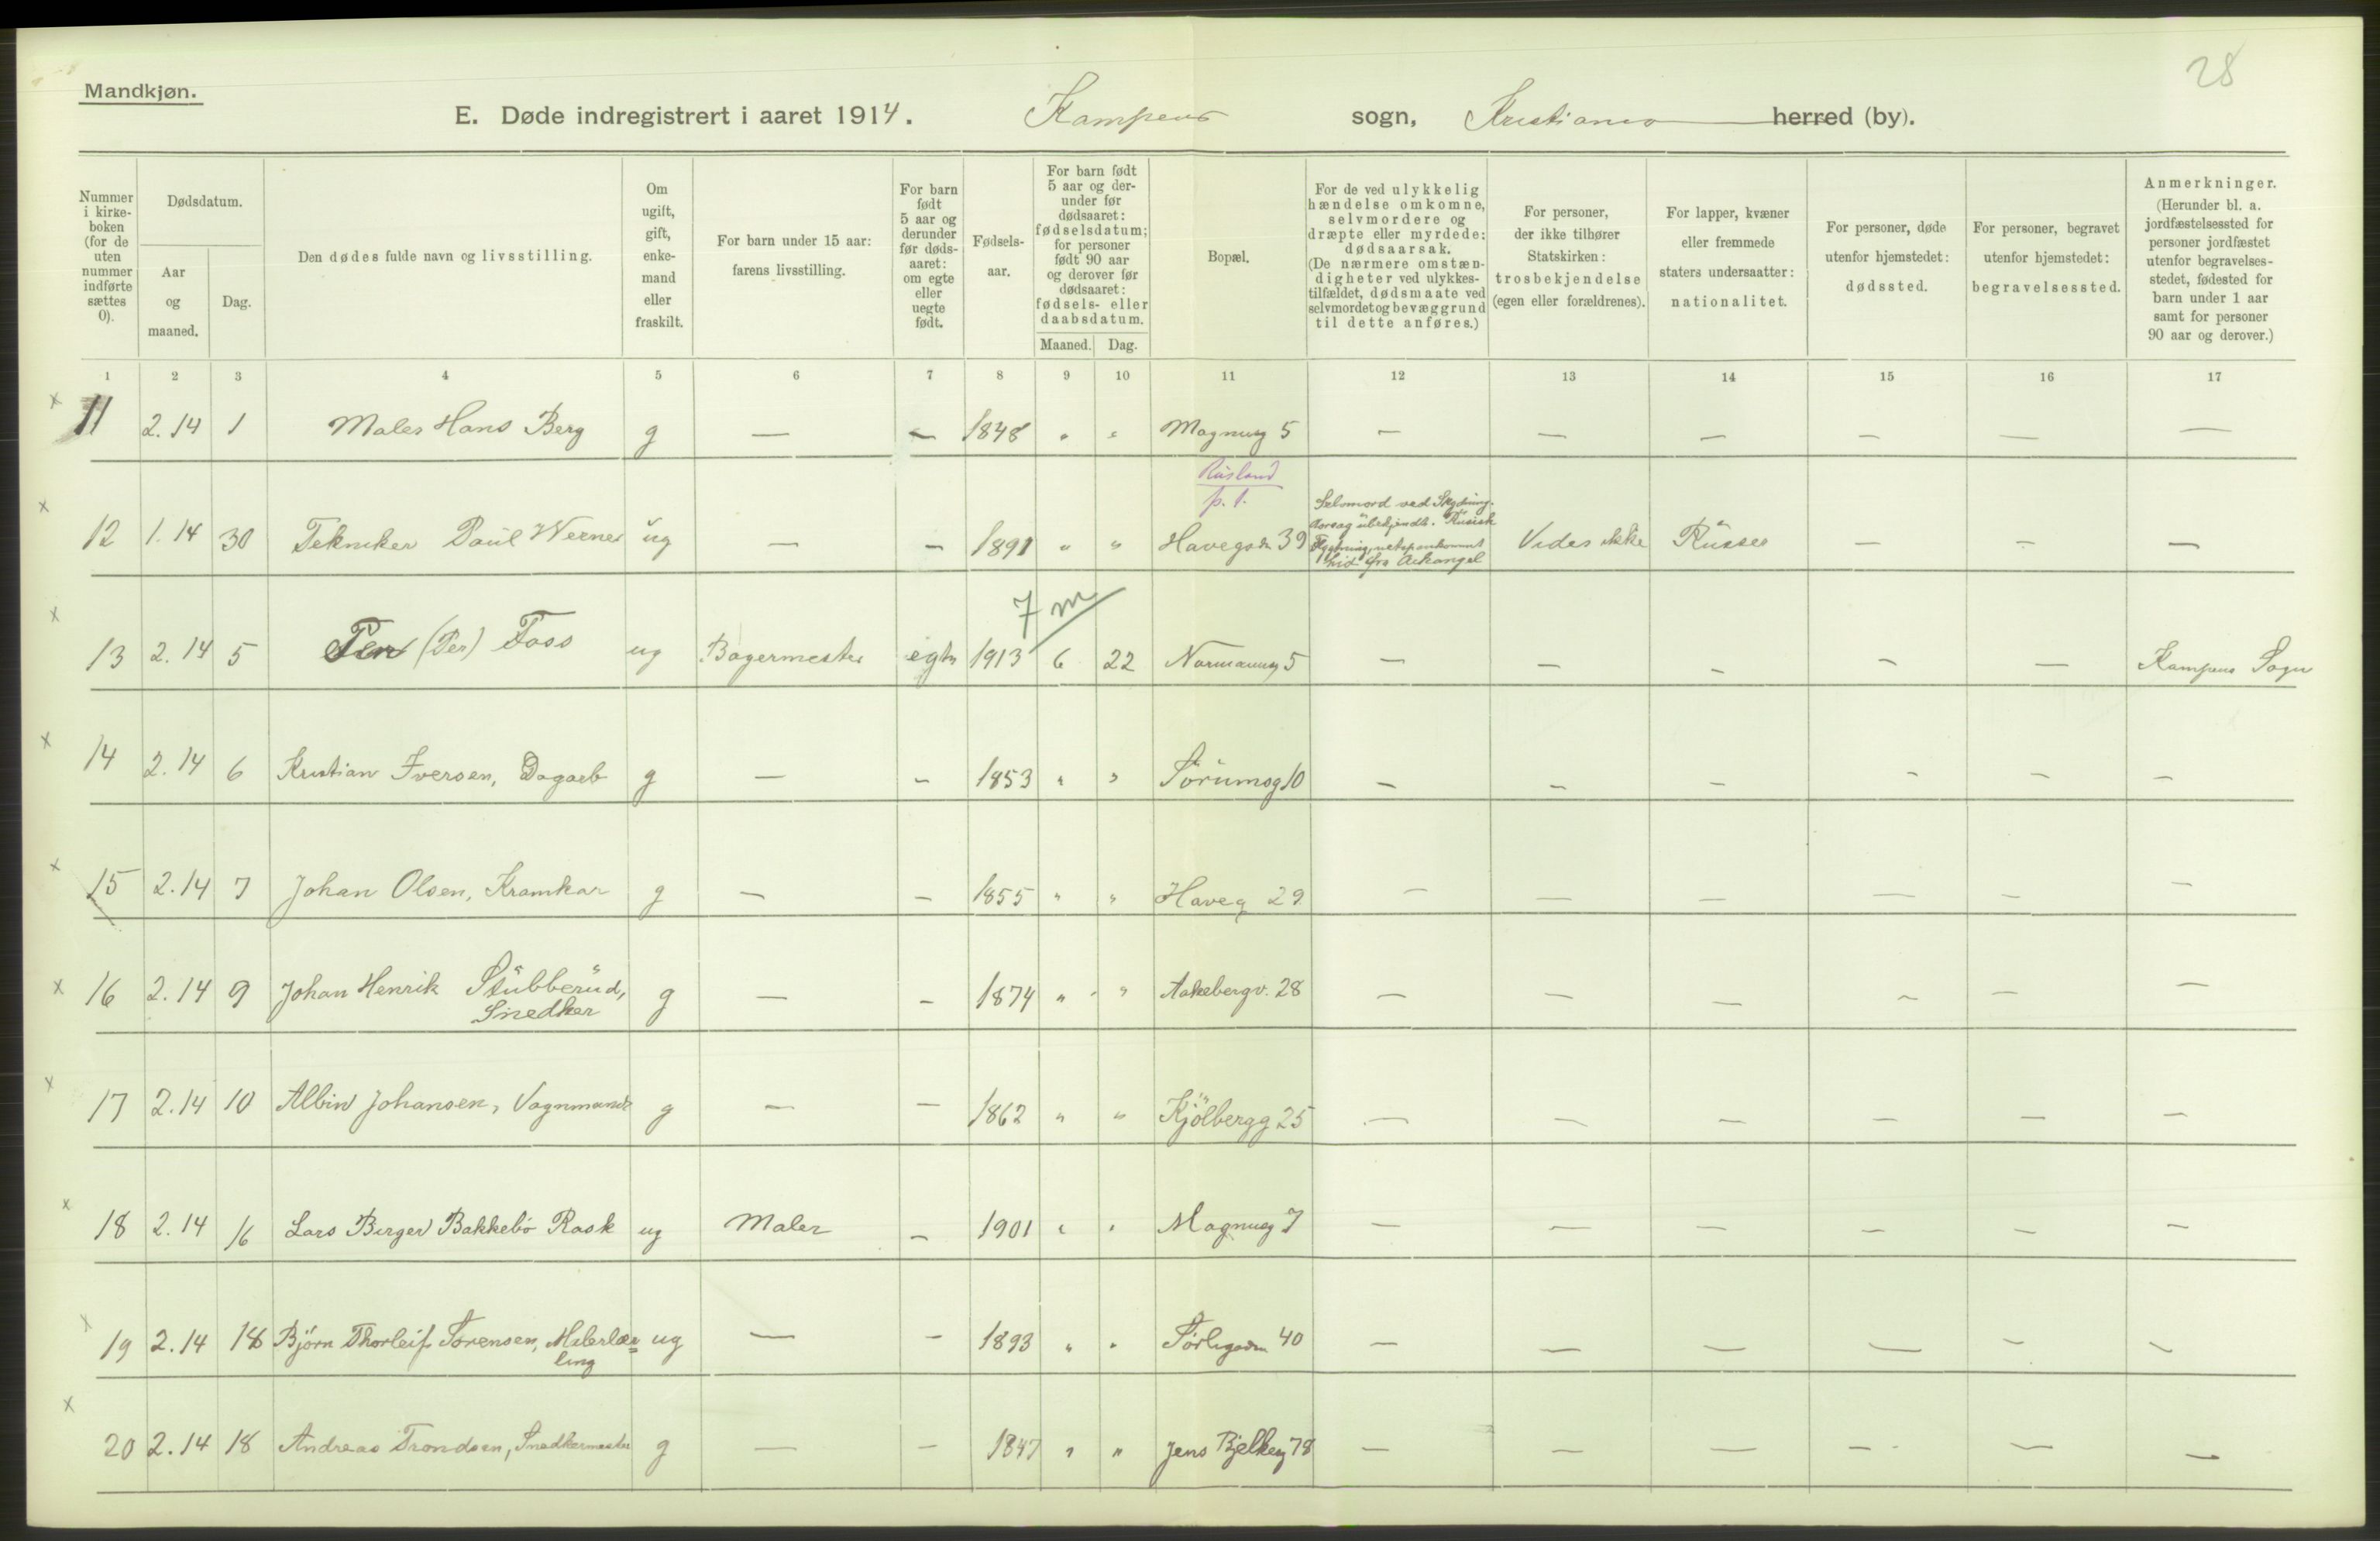 28
Mandkjøn.
E. Døde indregistrert i aaret 1914. Kampens sogn, Kristiania herred (by).
Nummer i kirke-boken (for de uten nummer indførte sættes 0).
Dødsdatum.
Aar og maaned.
Dag.
Den dødes fulde navn og livsstilling.
Om ugift, gift, enke-mand eller fraskilt.
For barn under 15 aar: farens livsstilling.
For barn født 5 aar og derunder før døds-aaret: om egte eller uegte født.
Fødsels-aar.
For barn født 5 aar og der-under før dødsaaret: fødselsdatum; for personer født 90 aar og derover før dødsaaret: fødsels- eller daabsdatum.
Maaned.
Dag.
Bopæl.
For de ved ulykkelig hændelse omkomne, selvmordere og dræpte eller myrdede: dødsaarsak. (De nærmere omstæn-digheter ved ulykkes-tilfældet, dødsmaate ved selvmordet og bevæggrund til dette anføres.)
For personer, der ikke tilhører Statskirken: trosbekjendelse (egen eller forældrenes).
For lapper, kvæner eller fremmede staters undersaatter: nationalitet.
For personer, døde utenfor hjemstedet: dødssted.
For personer, begravet utenfor hjemstedet: begravelsessted.
Anmerkninger. (Herunder bl. a. jordfæstelsessted for personer jordfæstet utenfor begravelses-stedet, fødested for barn under 1 aar samt for personer 90 aar og derover.)
1 2 3 4 5 6 7 8 9 10 11 12 13 14 15 16 17
x 11 2.14 1 Maler Hans Berg g — — 1848 " " Magnusg 5 — — — — — —
Rusland
p. t.
x 12 1.14 30 Tekniker Paul Werner ug — — 1891 " " Havegadn 39 Selvmord ved Skydning. Aarsag ubekjendt. Russisk Flygtning, netop ankommet hid fra Arkangel Vides ikke Russer — — —
7 m
x 13 2.14 5 Per (Per) Foss ug Bagermester egte 1913 6 22 Normannsg 5 — — — — — Kampens Sogn
x 14 2.14 6 Kristian Iversen, Dagarb g — — 1853 " " Sørumsg 10 — — — — — —
x 15 2.14 7 Johan Olsen, Kramkar g — — 1855 " " Haveg 29 — — — — — —
x 16 2.14 9 Johan Henrik Stubberud, Snedker g — — 1874 " " Aakebergv. 28 — — — — — —
x 17 2.14 10 Albin Johansen, Vognmand g — — 1862 " " Kjölbergg 25 — — — — — —
x 18 2.14 16 Lars Birger Bakkebø Rask ug Maler — 1901 " " Magnusg 7 — — — — — —
x 19 2.14 18 Björn Thorleif Sørensen, Malerlær=ling ug — — 1893 " " Sørligadn 40 — — — — — —
x 20 2.14 18 Andreas Trondsen, Snedkermester g — — 1847 " " Jens Bjelkeg 78 — — — — — —